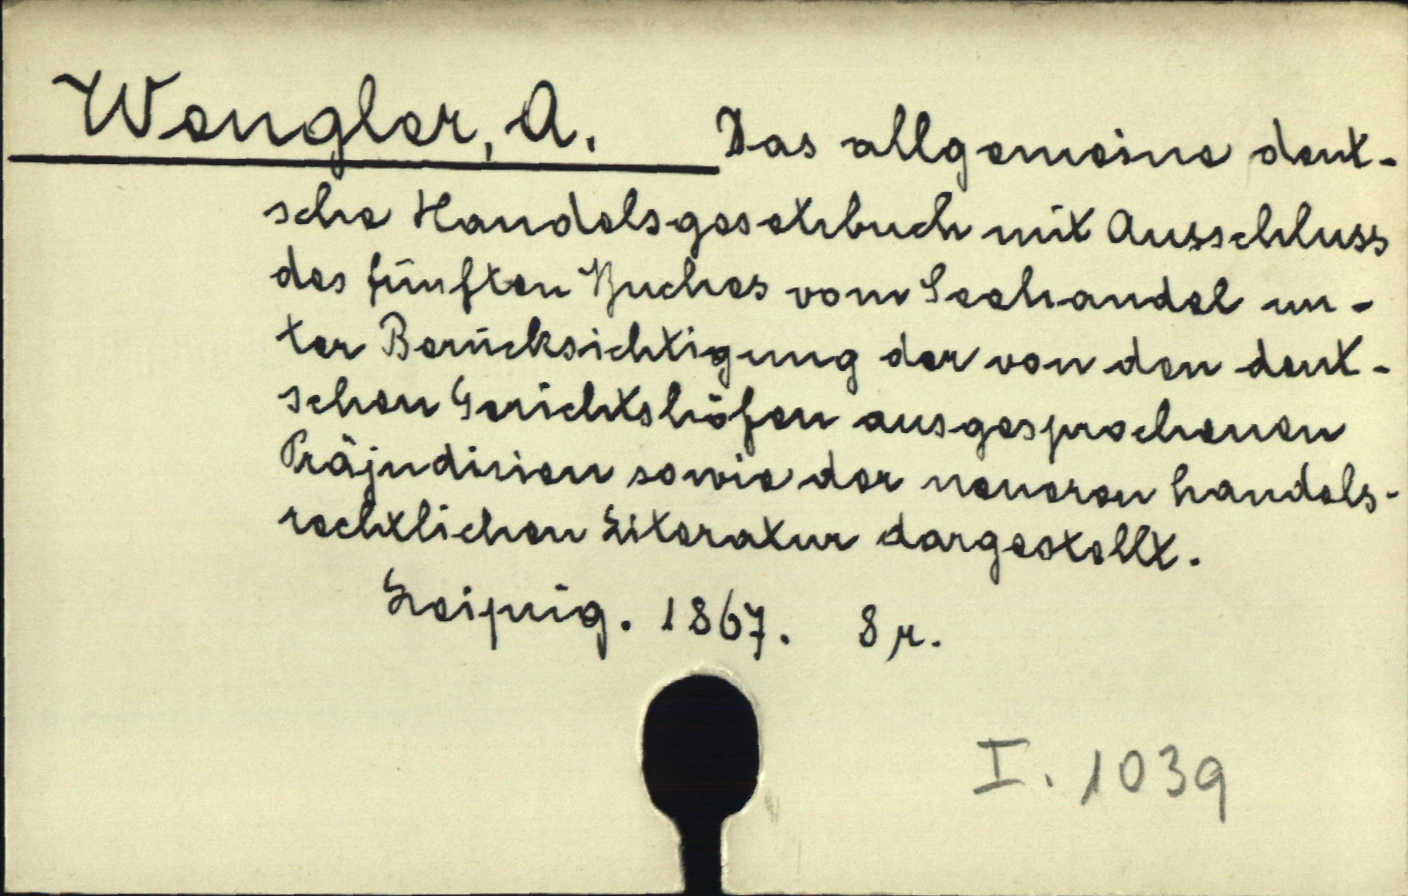 Wengler, A. Das allgemeine deut-
sche Handelsgesetzbuch mit Ausschluss
des fünften Buches vom Seehandel un-
ter Berücksichtigung der von den deut-
schen Gerichtshöfen ausgesprochenen
Präjudizien sowie der neueren handels-
rechtlichen Literatur dargestellt.
Leipzig. 1867. 8 r.
I. 1039